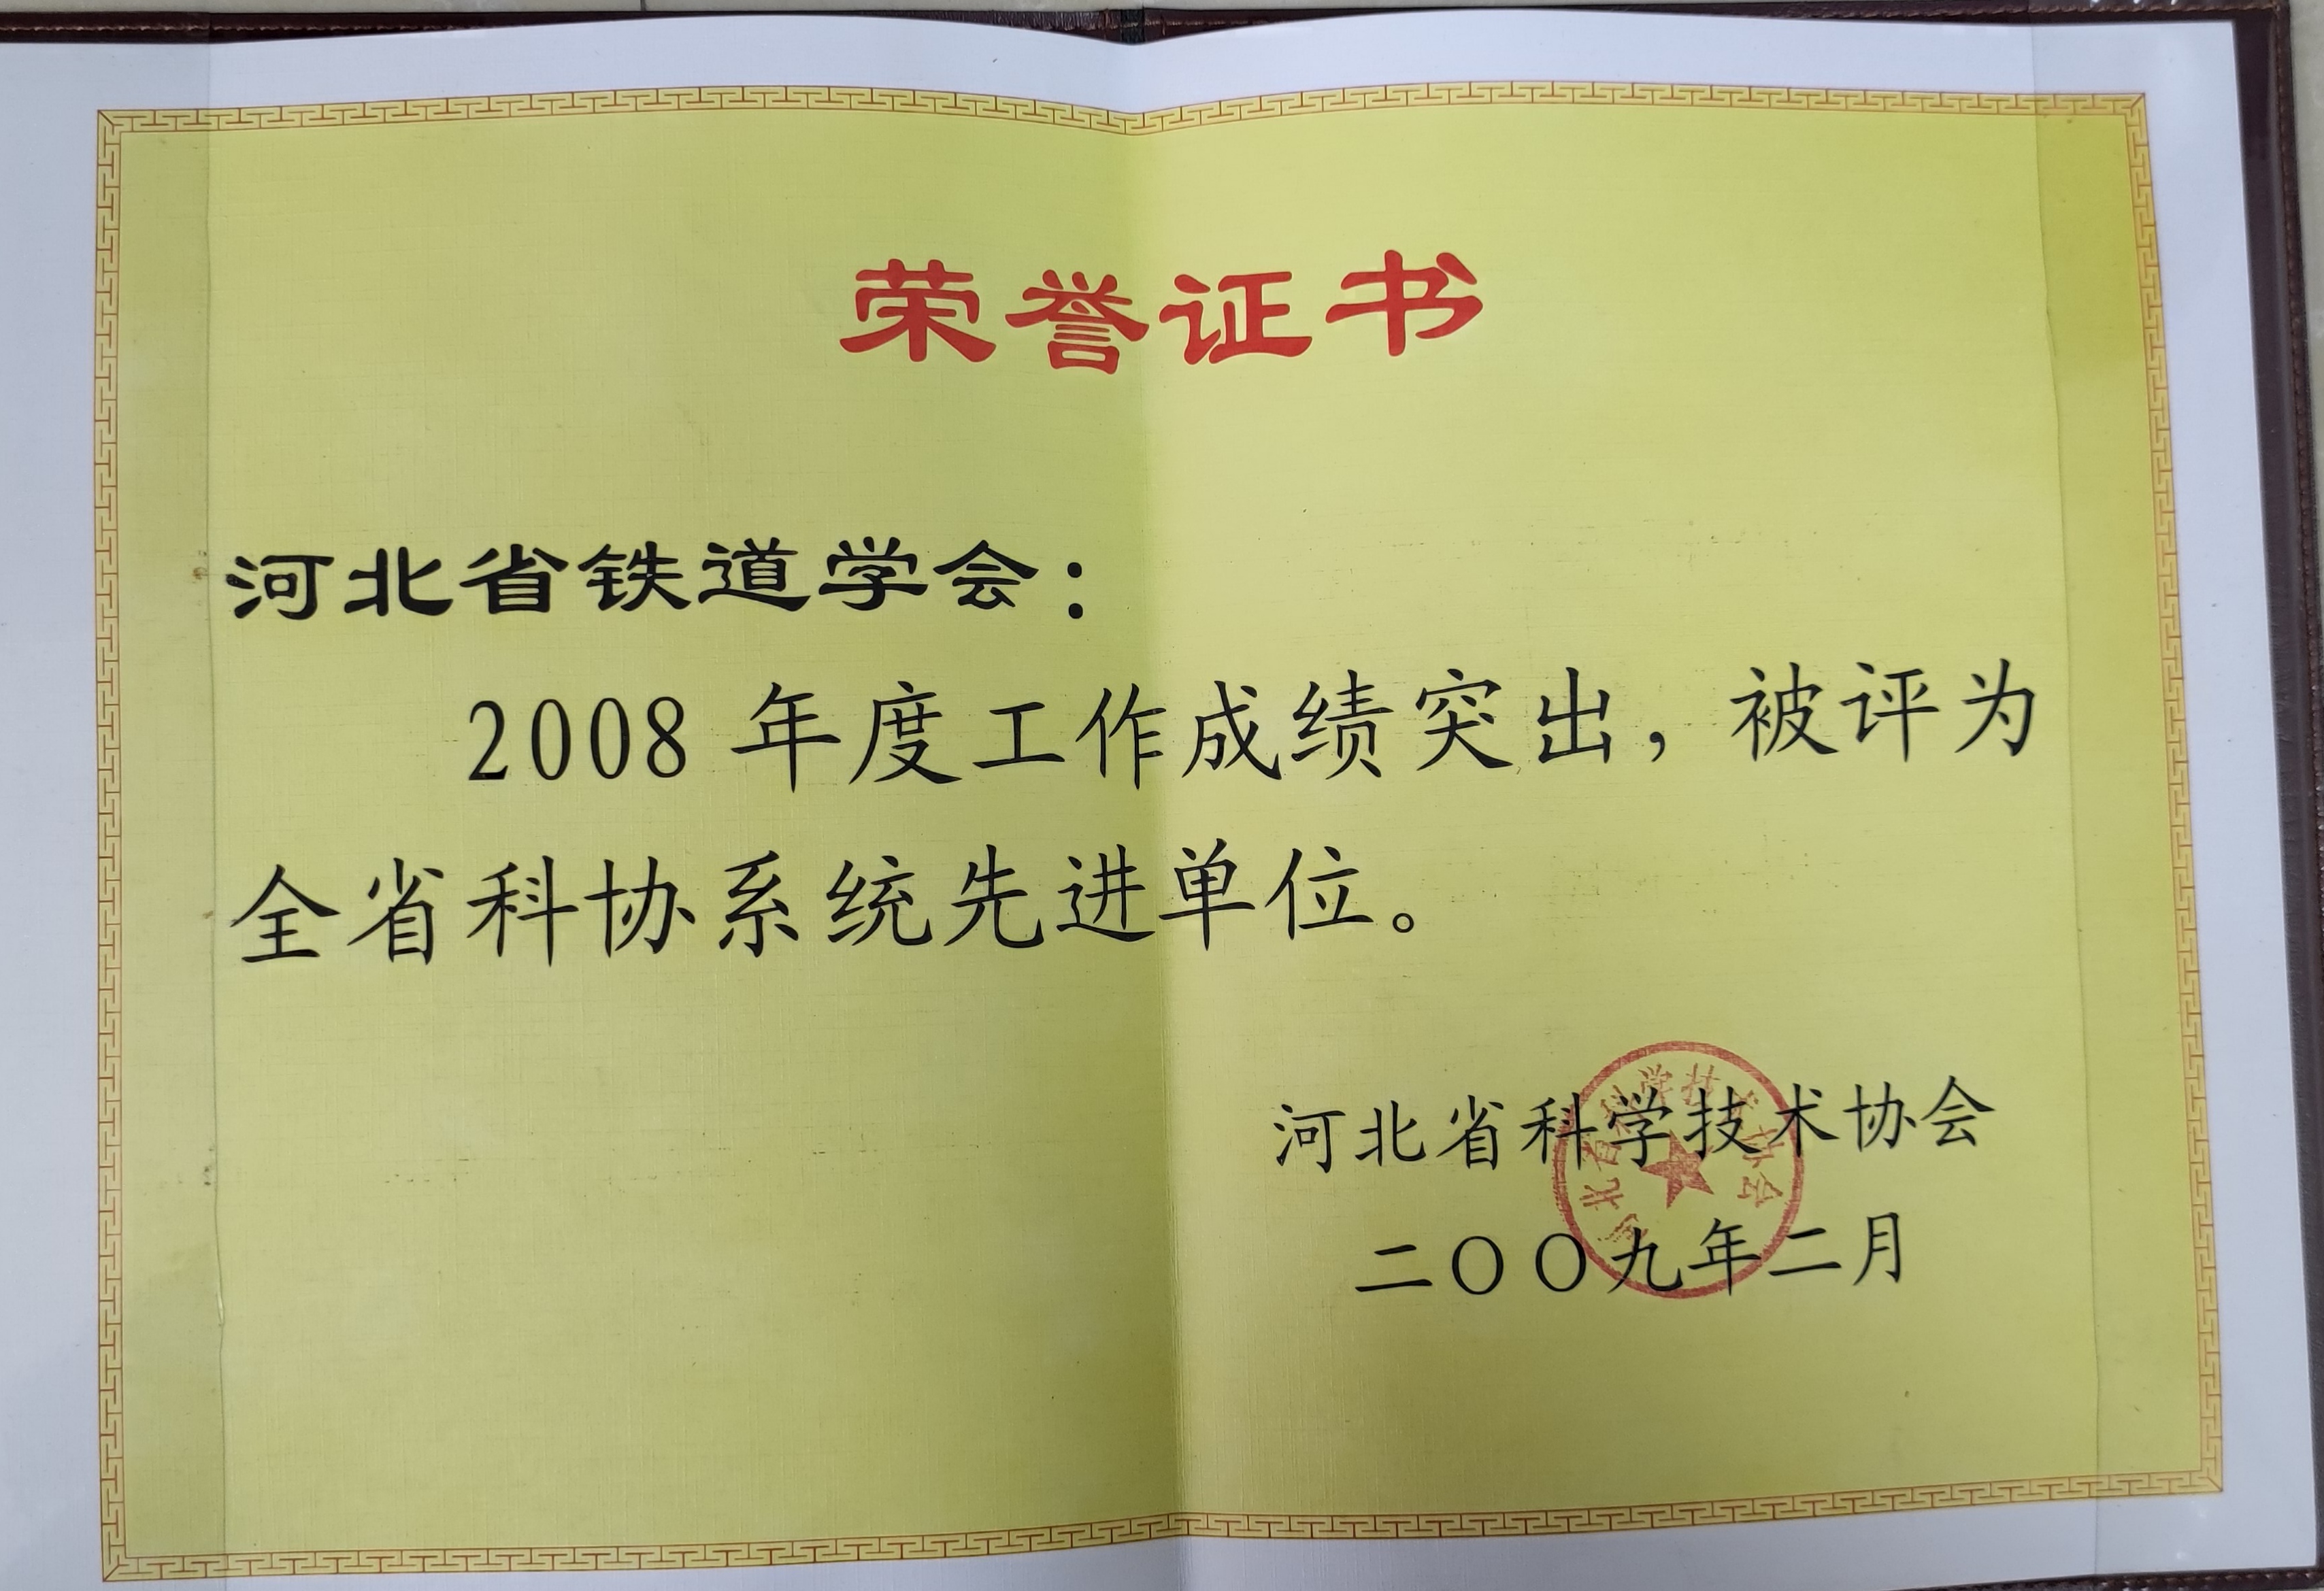 荣誉证书
河北省铁道学会：
2008 年度工作成绩突出，被评为
全省科协系统先进单位。
河北省科学技术协会
二〇〇九年二月
河北省科学技术协会